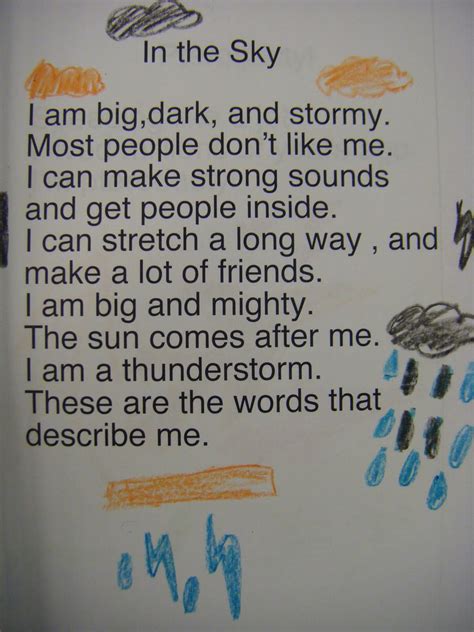 In the Sky
I am big,dark, and stormy.
Most people don't like me.
I can make strong sounds
and get people inside.
I can stretch a long way , and
make a lot of friends.
I am big and mighty.
The sun comes after me.
I am a thunderstorm.
These are the words that
describe me.